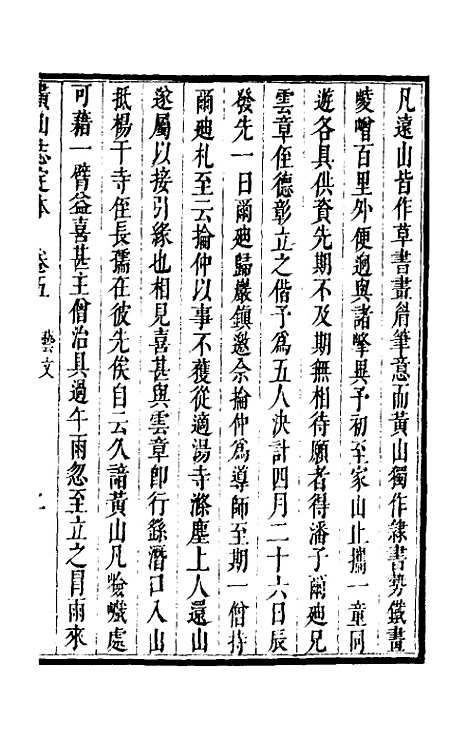 凡遠山皆作草書畫屑筆意而黃山獨作隸書勢鐵畫
崚嶒百里外便逈與諸峰異予初至家山止攜一童同
遊各具供資先期不及期無相待願者得潘子爾廸兄
雲章侄德彰立之偕予為五人決計四月二十六日辰
發先一日爾廸歸巖鎮邀佘掄仲為導師至期一僧持
爾廸札至云掄仲以事不獲從適湯寺滌塵上人還山
遂屬以接引緣也相見喜甚與雲章卽行繇潛口入出
抵楊干寺侄長孺在彼先俟自云久諳黃山凡嶮巇處
可藉一臂益喜甚主僧治具過午雨忽至立之冐雨來
黃山志定本 卷五 藝文